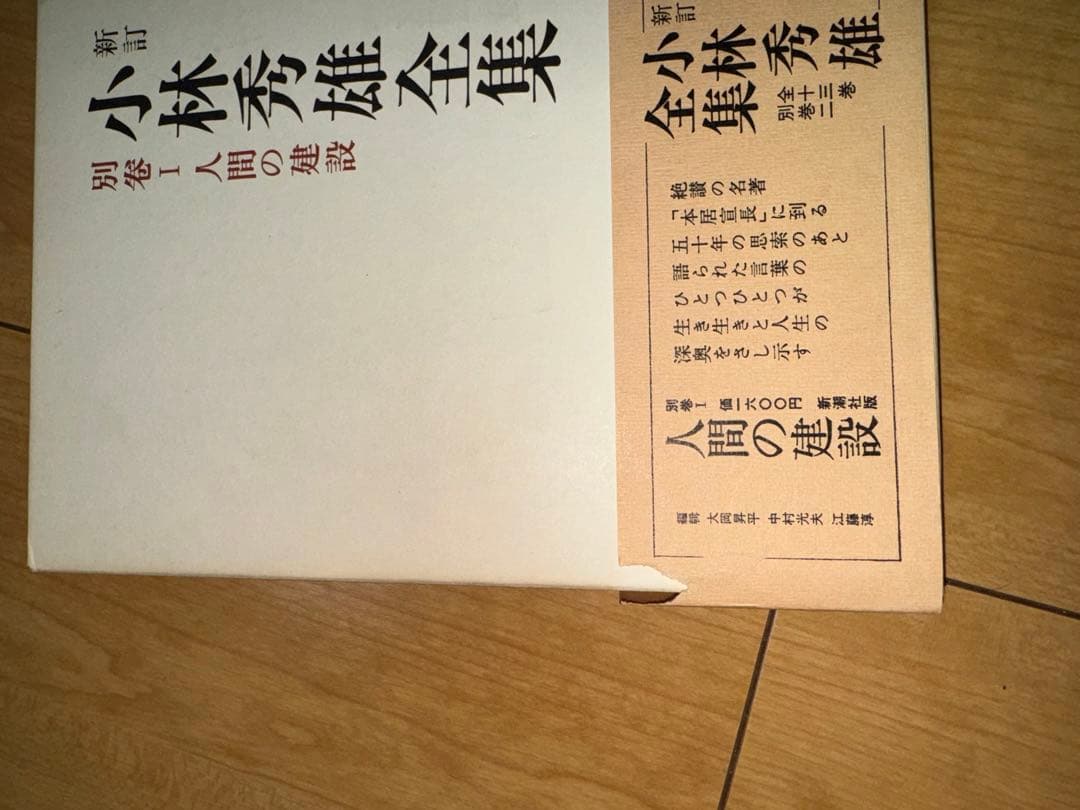 新訂
小林秀雄全集
別巻Ⅰ 人間の建設
新訂
小林秀雄
全集
全十三巻
別巻二
絶讃の名著
「本居宣長」に到る
五十年の思索のあと
語られた言葉の
ひとつひとつが
生き生きと人生の
深奥をさし示す
別巻Ⅰ 価一六〇〇円 新潮社版
人間の建設
編輯 大岡昇平 中村光夫 江藤淳